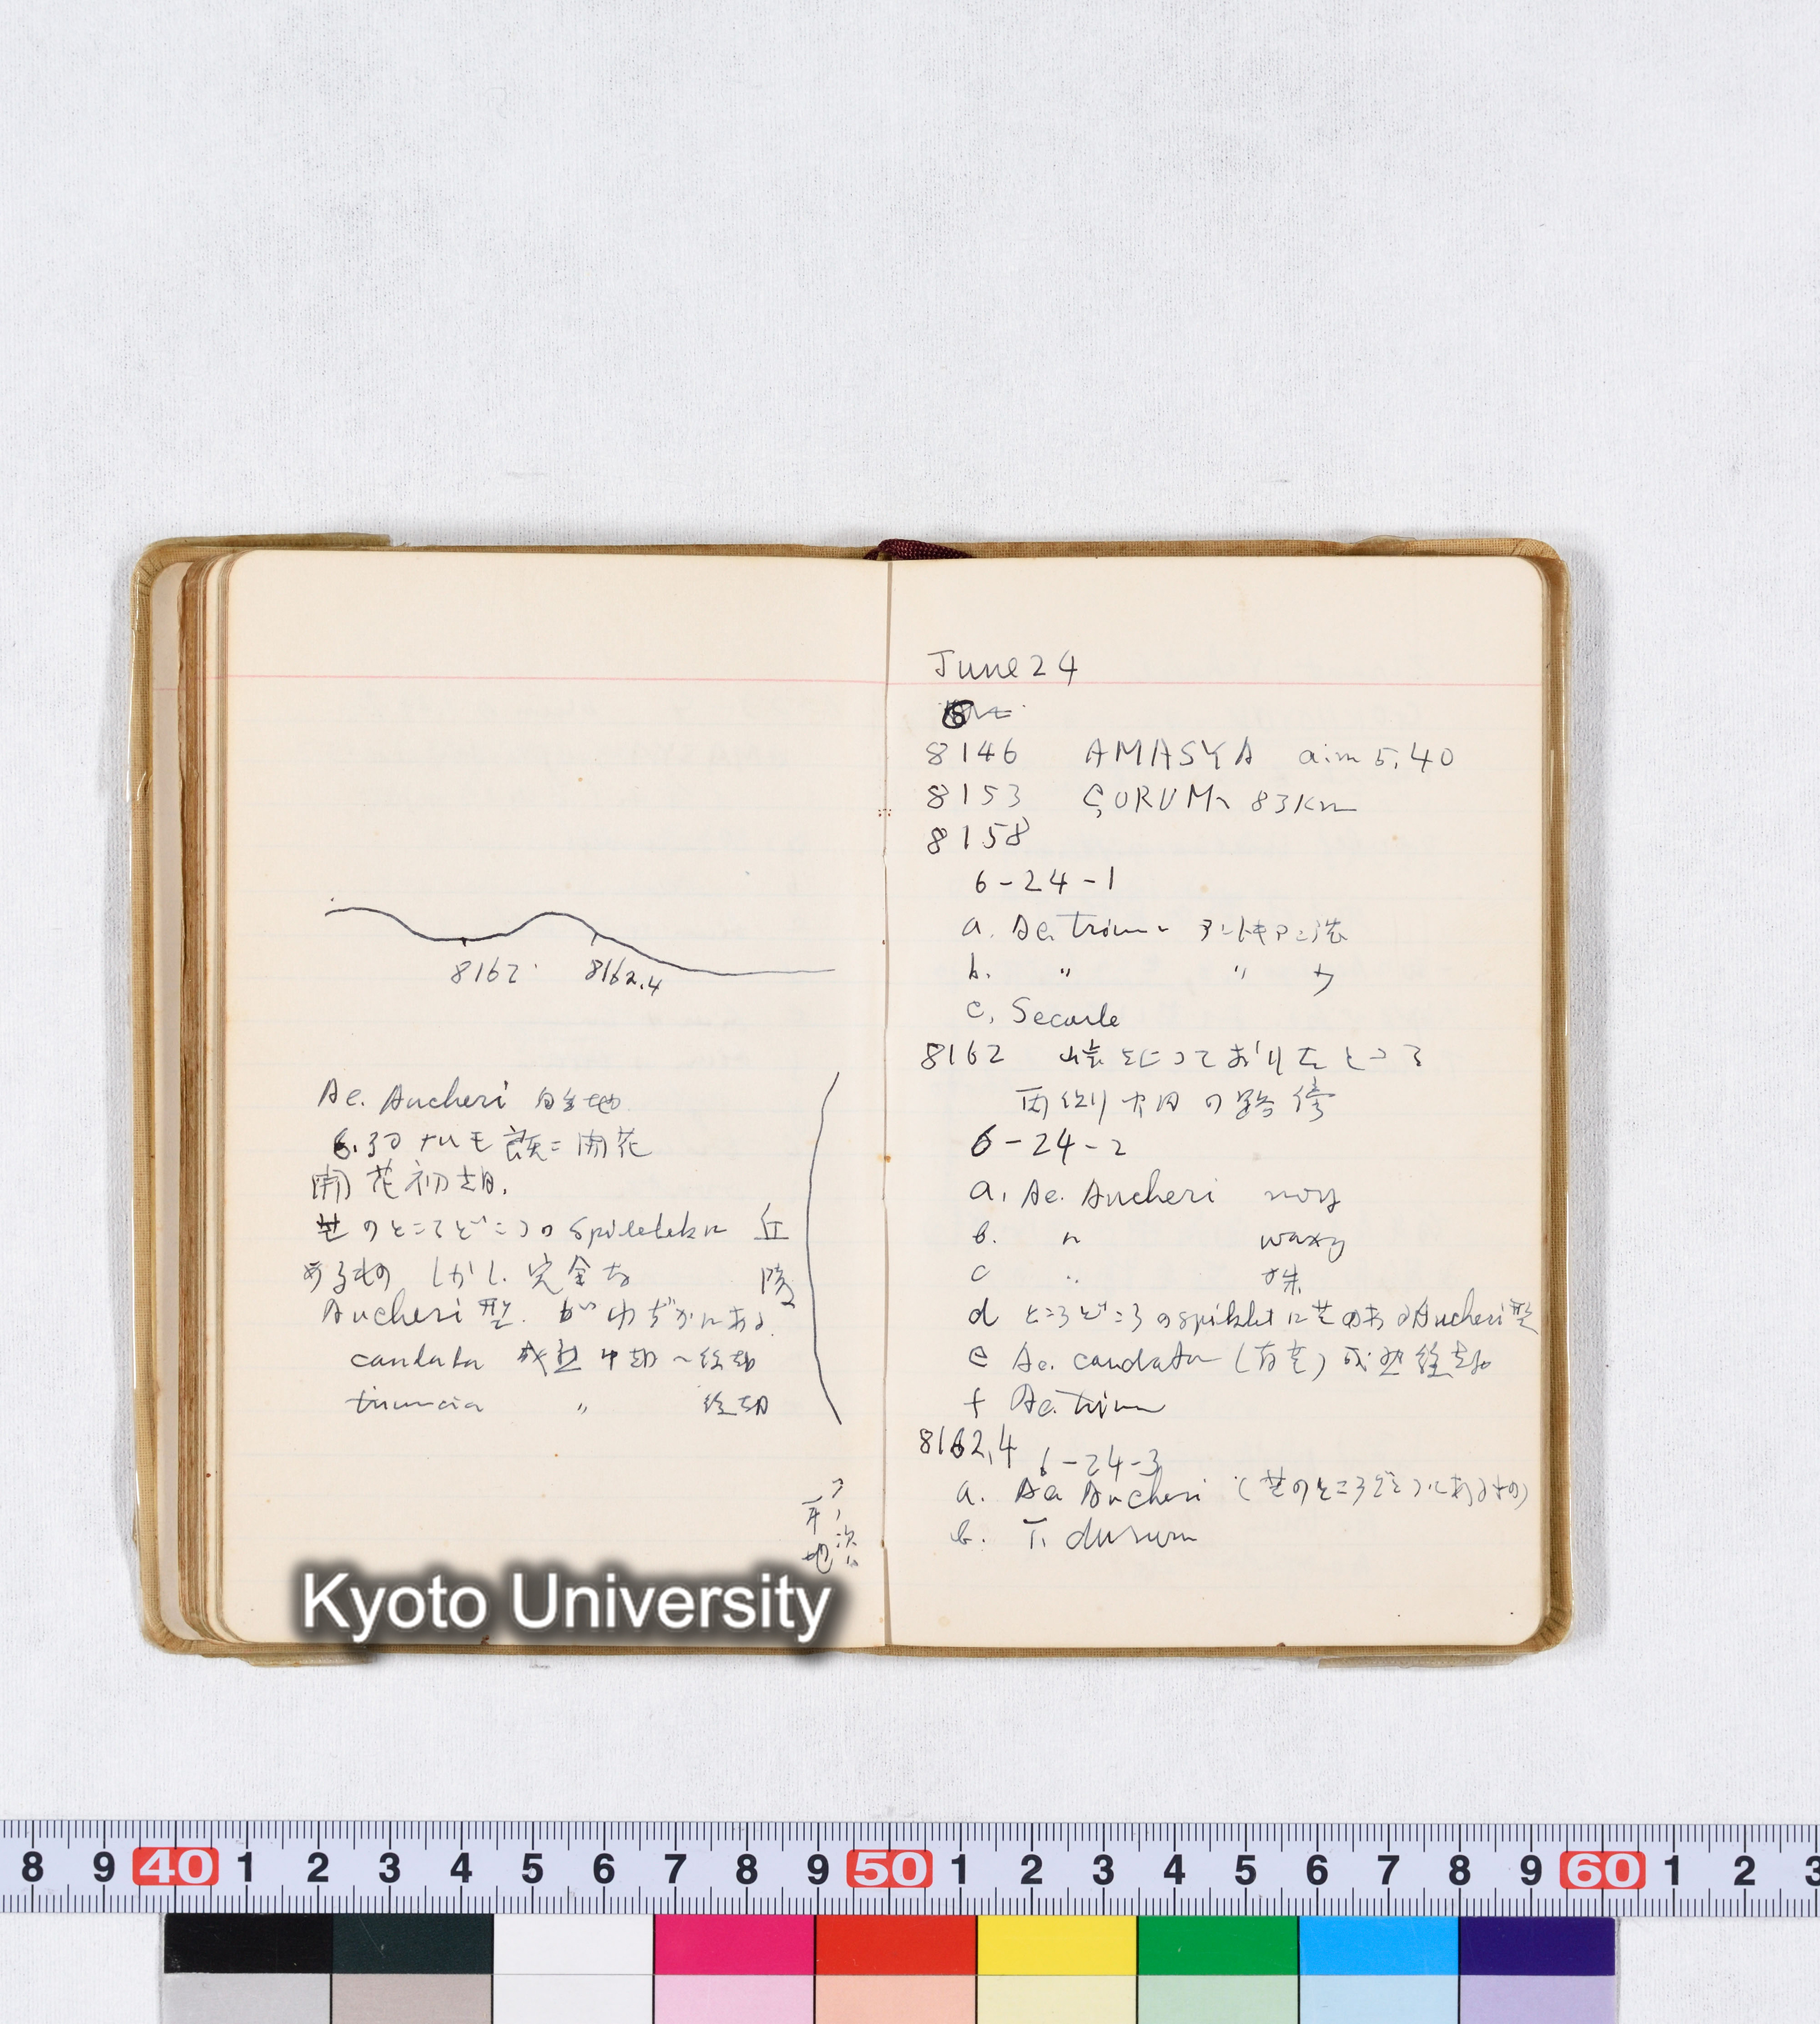 8162
8162.4
Ae. Aucheri 自生地
6.30 ナルモ 既ニ開花
開花初期.
芒のところどころの spikelet に
あるもの しかし 完全な
Aucheri 型. がわずかにある.
caudata 成熟中期〜終期
triuncia 〃 終期
丘
陵
平
地
June 24
8146 AMASYA a.m 5.40
8153 ÇORUMへ 83Km
8158
6-24-1
a. Ae. Trium
b. 〃 〃
c. Secale
8162 峠
両側 畑の路傍
6-24-2
a. Ae. Aucheri
b. 〃 waxy
c 〃 株
d ところどころの spikelet に芒のある Aucheri 型
e Ae. caudata (有芒) 成熟終期
f Ae. Trium
8162.4 6-24-3
a. Ae Aucheri (芒のところどころにあるもの)
b. T. durum
Kyoto University
8 9 40 1 2 3 4 5 6 7 8 9 50 1 2 3 4 5 6 7 8 9 60 1 2 3